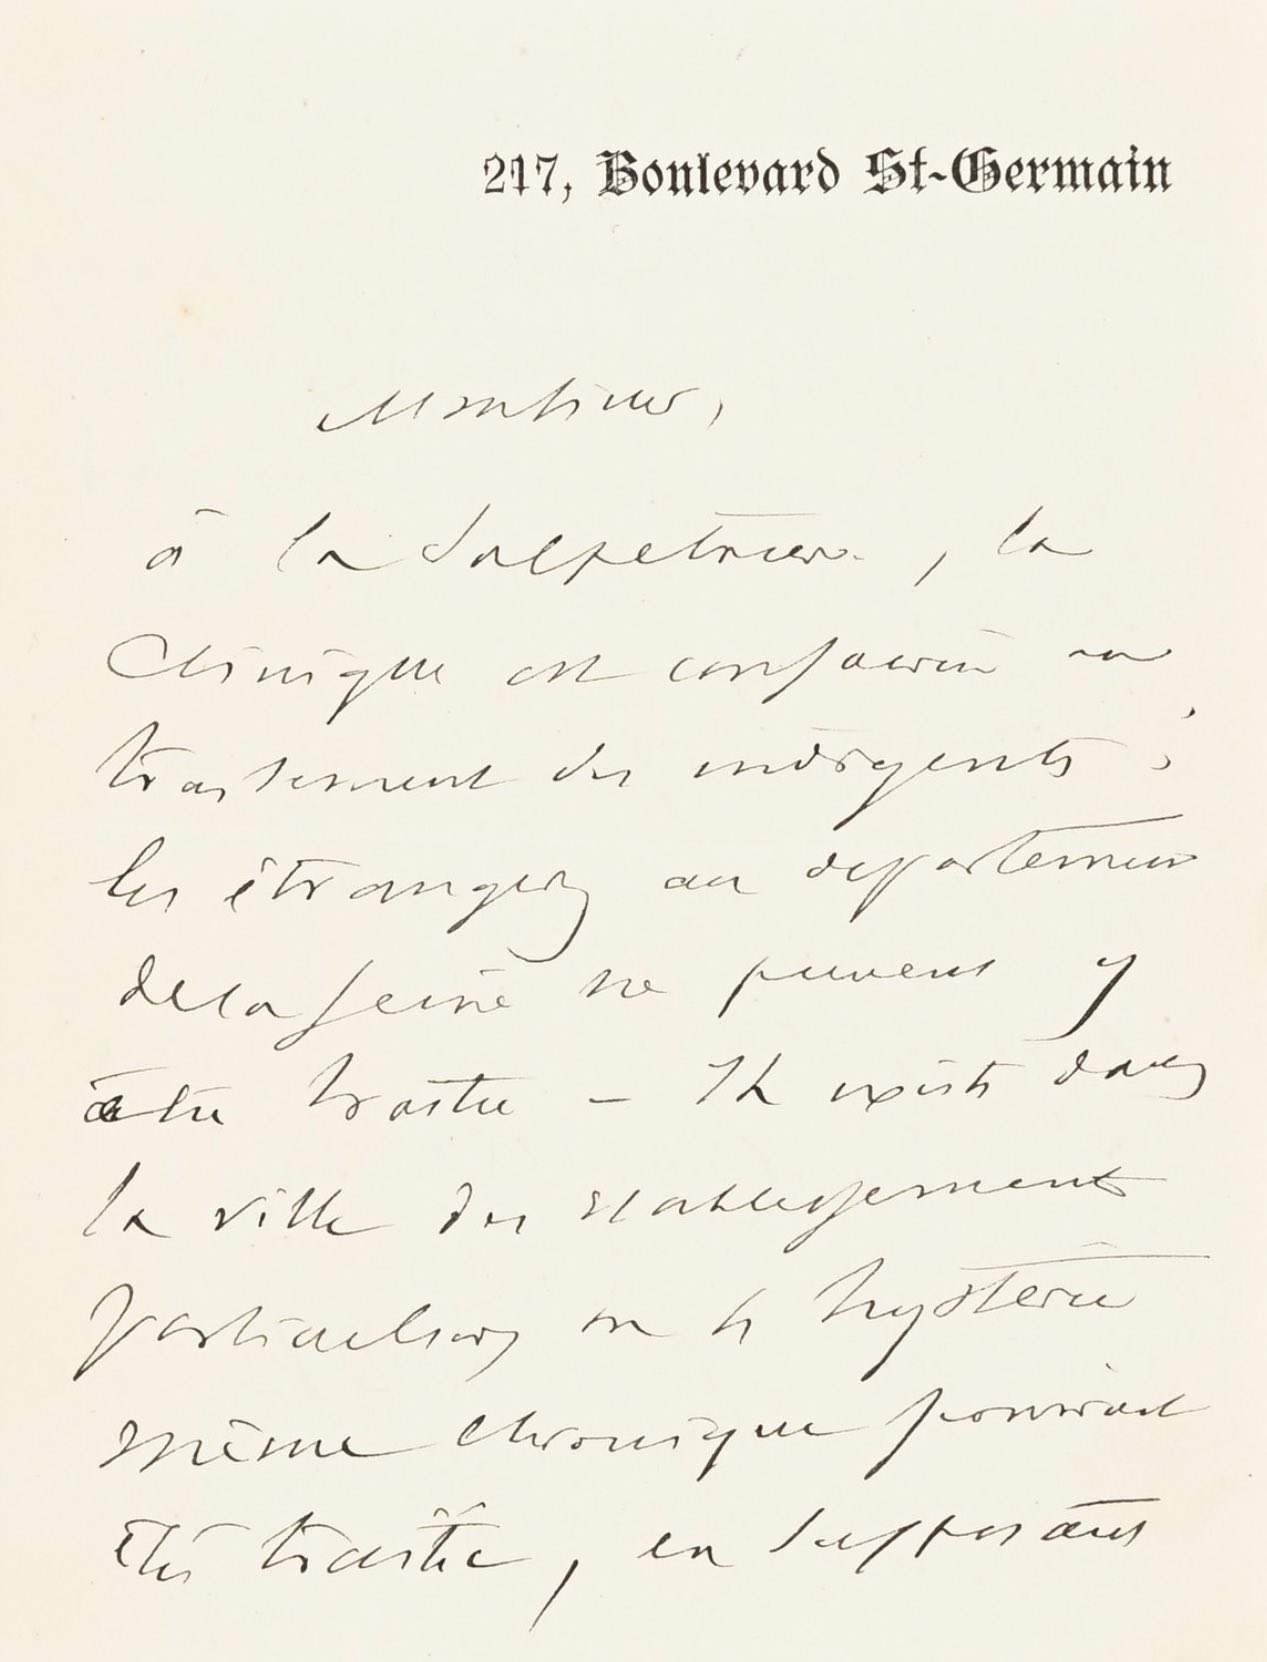 217, Boulevard St-Germain
Monsieur,
à la Salpetriere, la
Clinique est consacrée au
traitement des indigents ;
les étrangers au departement
de la Seine ne peuvent y
etre traités – Il existe dans
la ville des etablissements
particuliers ou les hysterie
même chronique pourrait
être traitée, en supposant